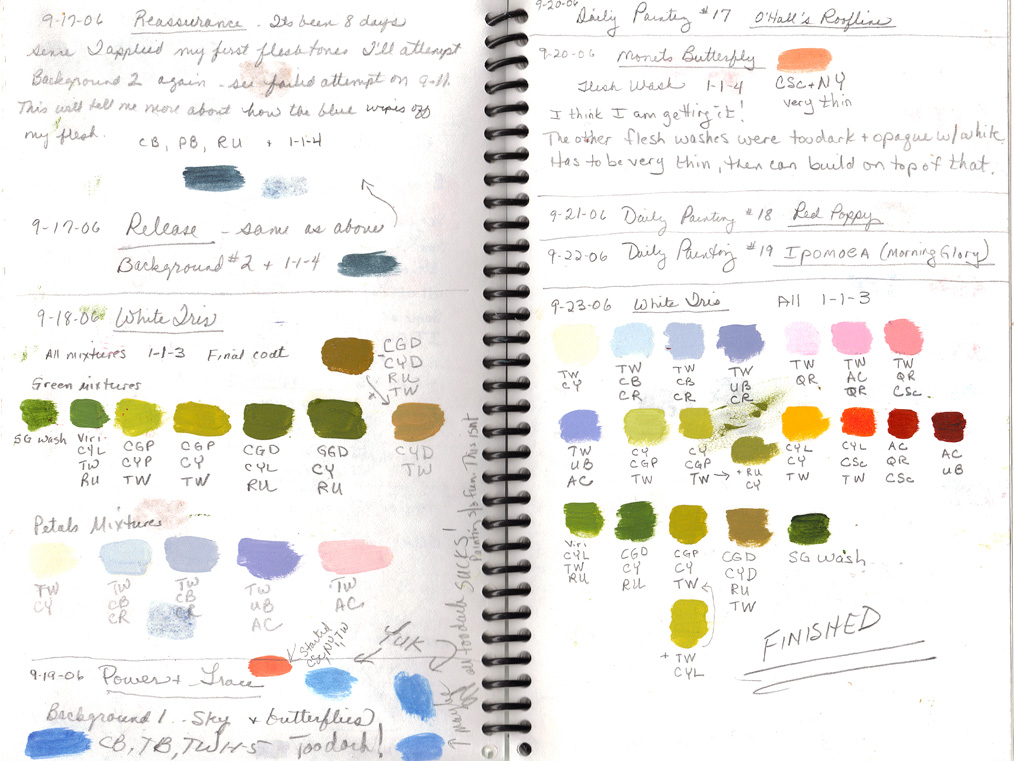 9-17-06 Reassurance - Its been 8 days
since I applied my first flesh tones I'll attempt
Background 2 again - see failed attempt on 9-11.
This will tell me more about how the blue wipes off
my flesh.
CB, PB, RU + 1-1-4
9-17-06 Release - same as above
Background #2 + 1-1-4
9-18-06 White Iris
All mixtures 1-1-3 Final coat
CGD
CYD
RU
TW
Green mixtures
SG Wash
Viri.
CYL
TW
RU
CGP
CYP
TW
CGP
CY
TW
CGD
CYL
RU
GGD
CY
RU
CYD
TW
Petals Mixtures
TW
CY
TW
CB
CR
TW
CB
CR
TW
UB
AC
TW
AC
Started
CSc, NY, TW
YUK
9-19-06 Power + Grace
Background 1 .. Sky + butterflies
CB, TB, TW 1-1-5 Too dark!
↑ Maybe all too dark SUCKS!
Painting s/b fun. This isnt
9-20-06 Daily Painting #17 O'Hall's Roofline
9-20-06 Monets Butterfly
Flesh Wash 1-1-4
CSc + NY
very thin
I think I am getting it!
The other flesh washes were too dark + opaque w/ white.
Has to be very thin, then can build on top of that.
9-21-06 Daily Painting #18 Red Poppy
9-22-06 Daily Painting #19 Ipomoea (Morning Glory)
9-23-06 White Iris All 1-1-3
TW
CY
TW
CB
CR
TW
CB
CR
TW
UB
CR
TW
QR
TW
AC
QR
TW
QR
CSc
TW
UB
AC
CY
CGP
TW
CY
CGP
TW →
+ RU
CY
CYL
CY
TW
CYL
CSc
TW
AC
QR
CSc
AC
UB
Viri
CYL
TW
RU
CGD
CY
RU
CGP
CY
TW
CGD
CYD
RU
TW
SG Wash
+ TW
CYL
FINISHED